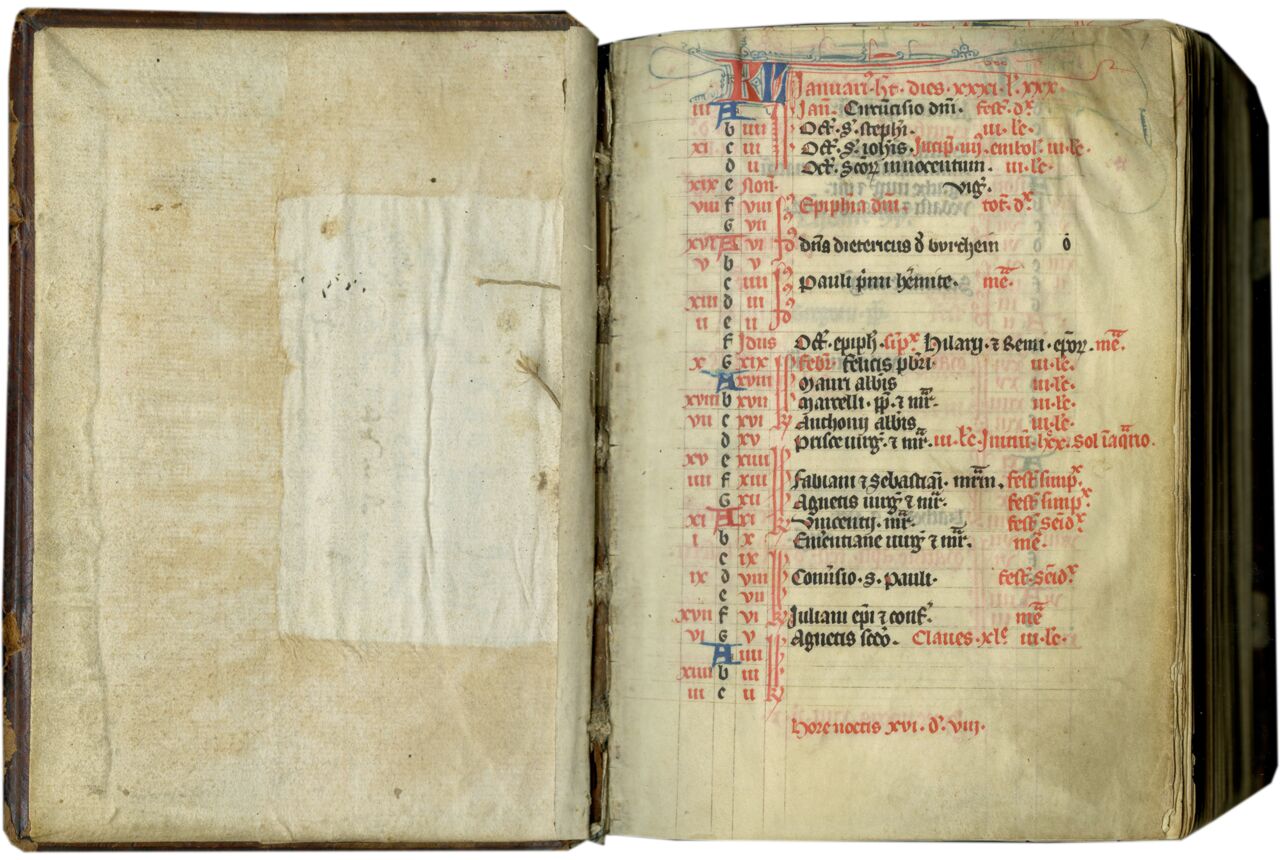 KL Januari⁹ ht. dies. xxxi. l. xxx.
iii A Jan̄. Circūcisio dn̄i. fest. d
b iiii Oct̄. s. stephī. iii. lc̄.
xi c iii Oct̄. s. ioh̄is. Incip. iiij. embol. iii. lc̄.
d ii Oct̄. scōꝝ innocentum. iii. lc̄.
xix e Non. viḡ.
viii f viii Epiphīa dn̄i. tot. d
G vii
xvi A vi dn̄s dietericus d̄ burchein ō
v b v
c iiii Pauli p̄mi h̄emite. mē.
xiii d iii
ii e ii
f Idus Oct̄. epiph̄. simp̄ Hilarij ⁊ Remi. ep̄oꝝ. mē.
x G xix Febr̄ felicis pb̄ri. iii. lc̄.
A xviii Mauri abb̄is iii. lc̄.
xviii b xvii Marcelli. pp̄. ⁊ mr̄. iii. lc̄.
vii c xvi Anthonij abb̄is iii. lc̄.
d xv Prisce uirḡ. ⁊ mr̄. iii. lc̄. Initiū. lxx. Sol ī aq̄rio.
xv e xiiii
iiii f xiii Fabiani ⁊ Sebastiani. mr̄m. fest̄ simp̄.
G xii Agnetis uirḡ ⁊ mr̄. fest̄ simp̄.
xi A xi Vincentij. mr̄. fest̄ scīd.
i b x Em̄entiane uirḡ ⁊ mr̄. mē.
c ix
ix d viii Conūsio. s. Pauli. fest̄. scīd.
e vii
xvii f vi Juliani ep̄i ⁊ conf̄. mē
vi G v Agnetis scdo. Claues. xlᵉ iii. lc̄.
A iiii
xiiii b iii
iii c ii
Hore noctis xvi. d. viij.